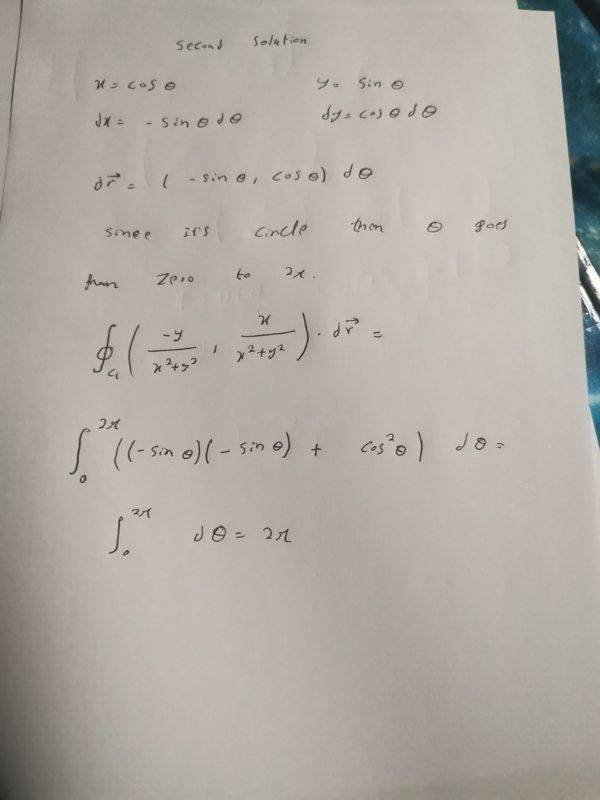 second solution
x = cos θ y = sin θ
dx = - sin θ dθ dy = cos θ dθ
dr⃗ = ( - sin θ, cos θ) dθ
since it's circle then θ goes
from zero to 2π.
∮_C₁ ( -y/(x²+y²) , x/(x²+y²) ) · dr⃗ =
∫₀^2π ((-sin θ)(- sin θ) + cos²θ) dθ =
∫₀^2π dθ = 2π